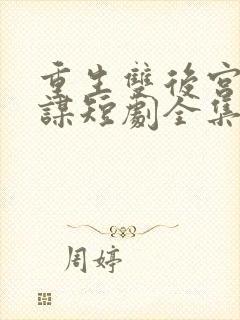 重生雙後宮
謀短劇全集
周婷